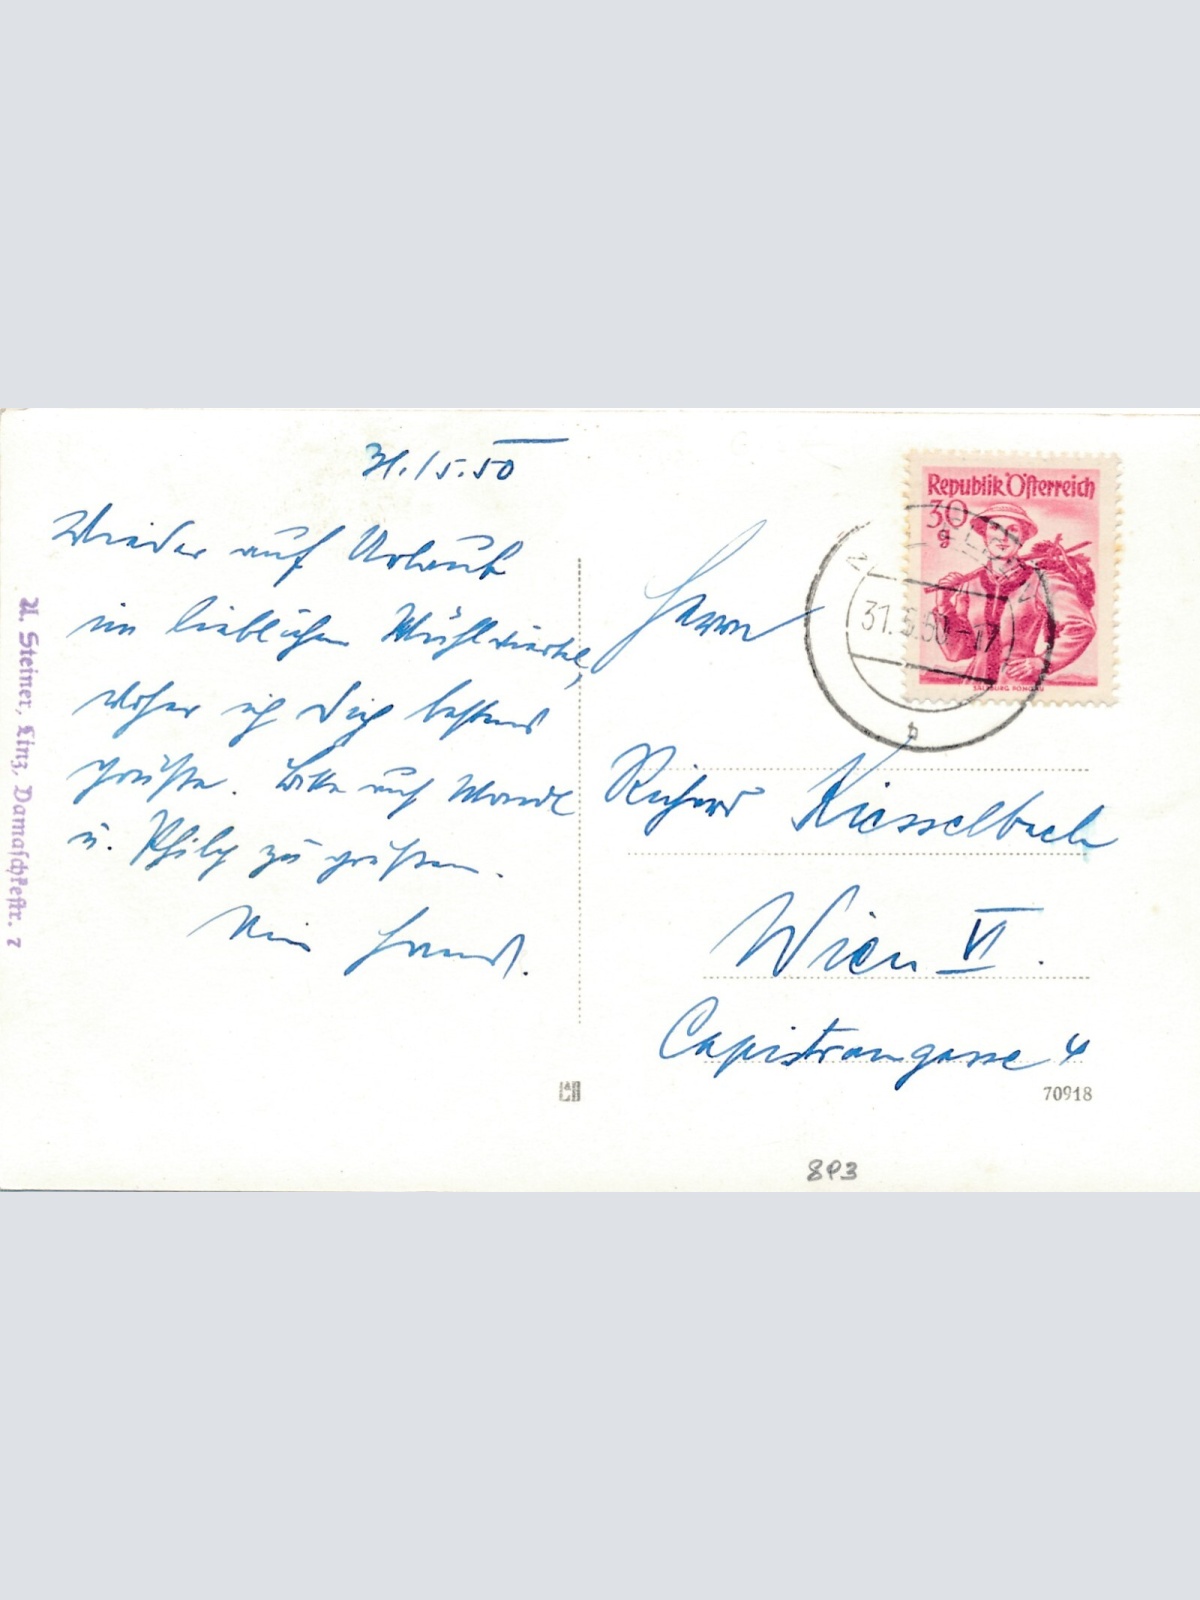 31./5.50
Wieder auf Urlaub
im lieblichen Mühlviertel,
woher ich Dich bestens
grüße. Bitte auch
u. zu grüßen.
Dein
A. Steiner, Linz, Damaschkestr. 7
Republik Österreich
30
g
SALZBURG PONGAU
31.5.50-17
b
Herrn
Richard Kiesselbach
Wien VI.
Capistrangasse 4
70918
8P3